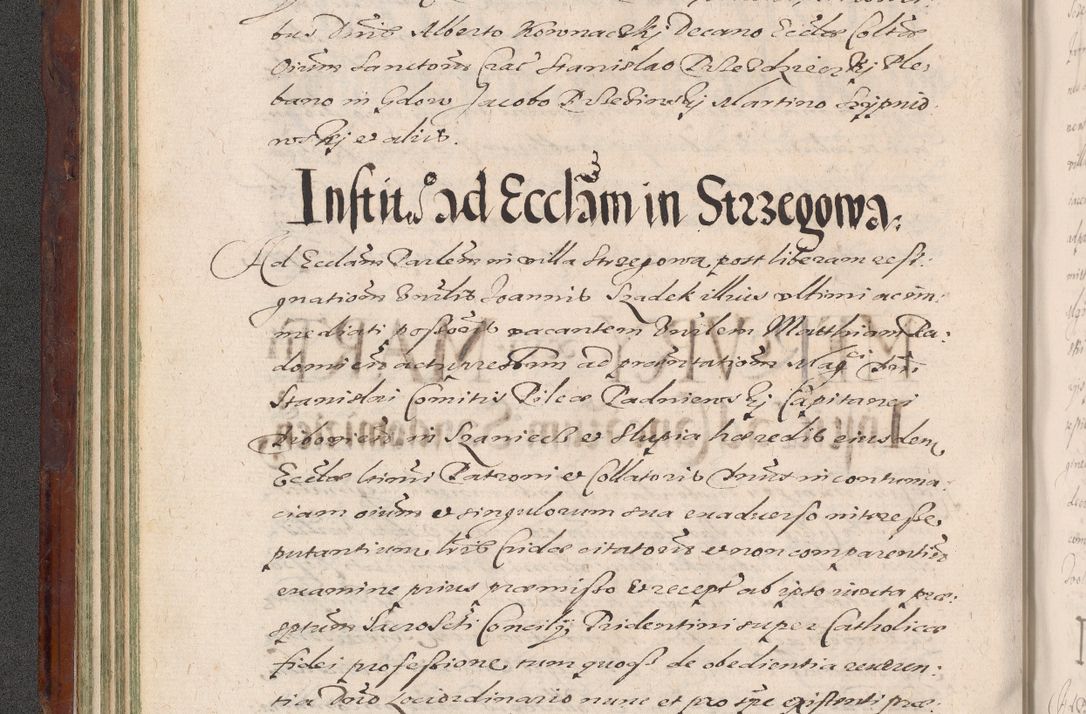 bus Dnis Alberto Kownaczkj Decano Eccłae Coltae
Oium Sanctorum Crac Stanislao Przedzieczkj Ple-
bano in Gdow Jacobo Przedzinskj Martino
wskj et aliis.
Instit.o ad Ecclãm in Strzegowa.
Ad Ecclãm Parlem in villa Strzegowa post liberam resi-
gnationem Vnlis Joannis Szadek illius vltimi ac im-
mediati possoris vacantem Vnlem Matthiam Ra-
domien ad prntationem Magci Dni
Stanislai Comitis Pilcae Padniewskj Capitanei
in Szaniecz et Slupia haeredis eiusdem
Ecclae ltimi Patroni et Collatoris Dnus in contuma-
ciam oium et singulorum sua exaduerso nteresse
putantium lris Cridae citatorum et non comparentium
examine prius praemisso et recepta ab ipso iuxta prae-
septum Sacros[cti] Concilij Tridentini super Catholicae
fidei professione tum quoqs de obedientia reueren-
tia Dno Lociordinario nunc et pro tpe existenti prae-